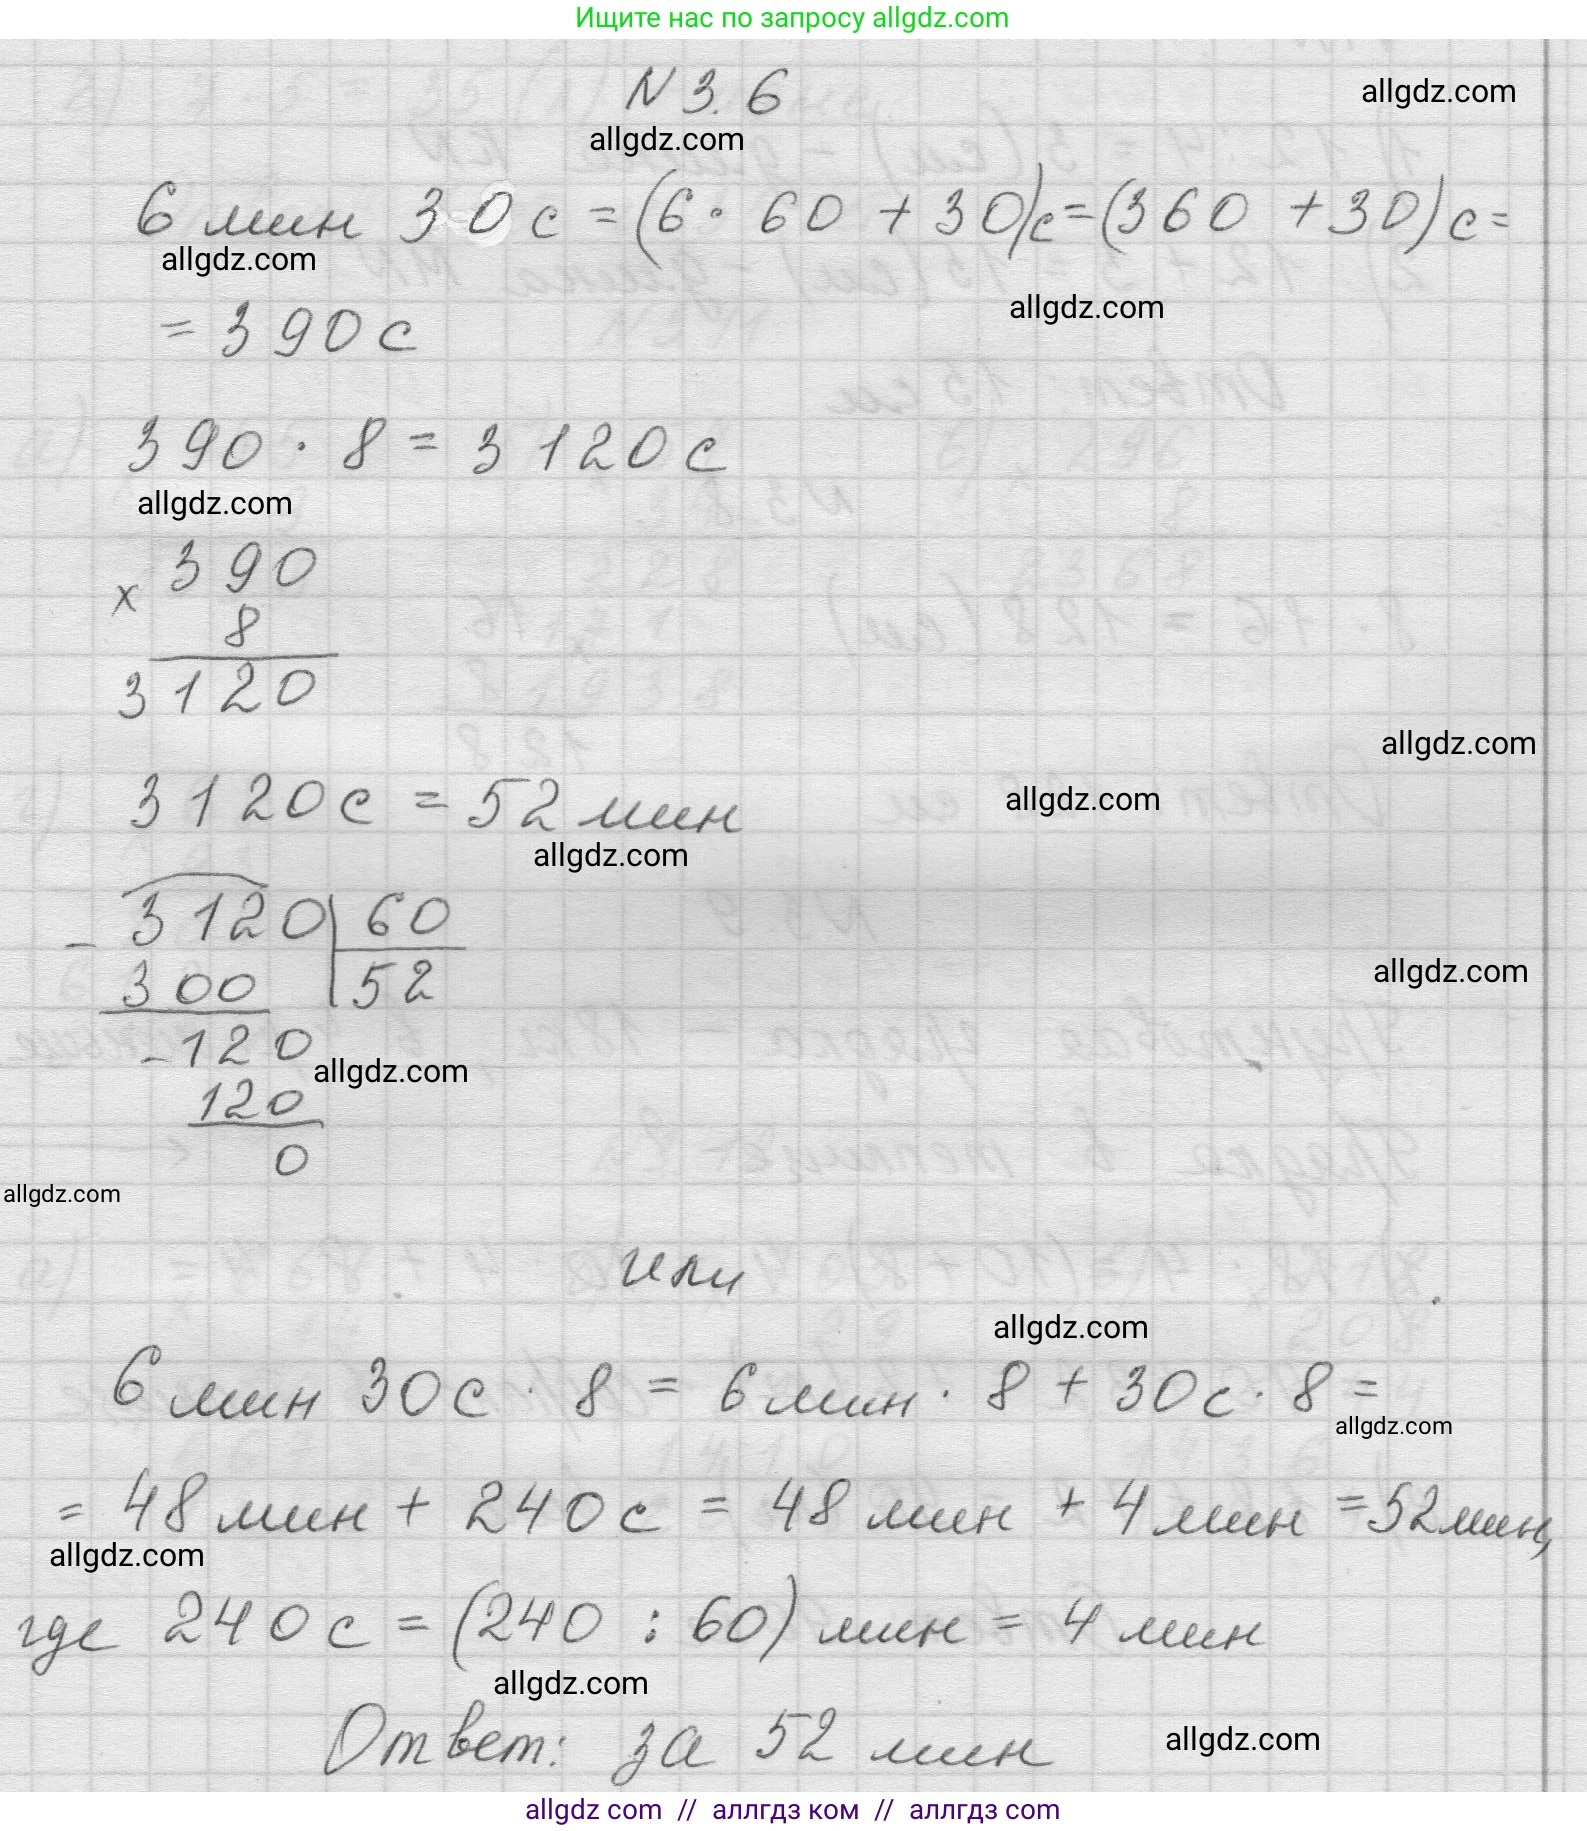 Ищите нас по запросу allgdz.com
N 3.6
allgdz.com
allgdz.com
6 мин 30 с = (6 · 60 + 30) с = (360 + 30) с =
allgdz.com
allgdz.com
= 390 с
390 · 8 = 3120 с
allgdz.com
390
x
8
3120
allgdz.com
3120 с = 52 мин
allgdz.com
allgdz.com
- 3120 60
300 52
allgdz.com
- 120
allgdz.com
120
0
allgdz.com
или
allgdz.com
6 мин 30 с · 8 = 6 мин · 8 + 30 с · 8 =
allgdz.com
= 48 мин + 240 с = 48 мин + 4 мин = 52 мин,
allgdz.com
где 240 с = (240 : 60) мин = 4 мин
allgdz.com
Ответ: за 52 мин
allgdz.com
allgdz com // аллгдз ком // аллгдз com